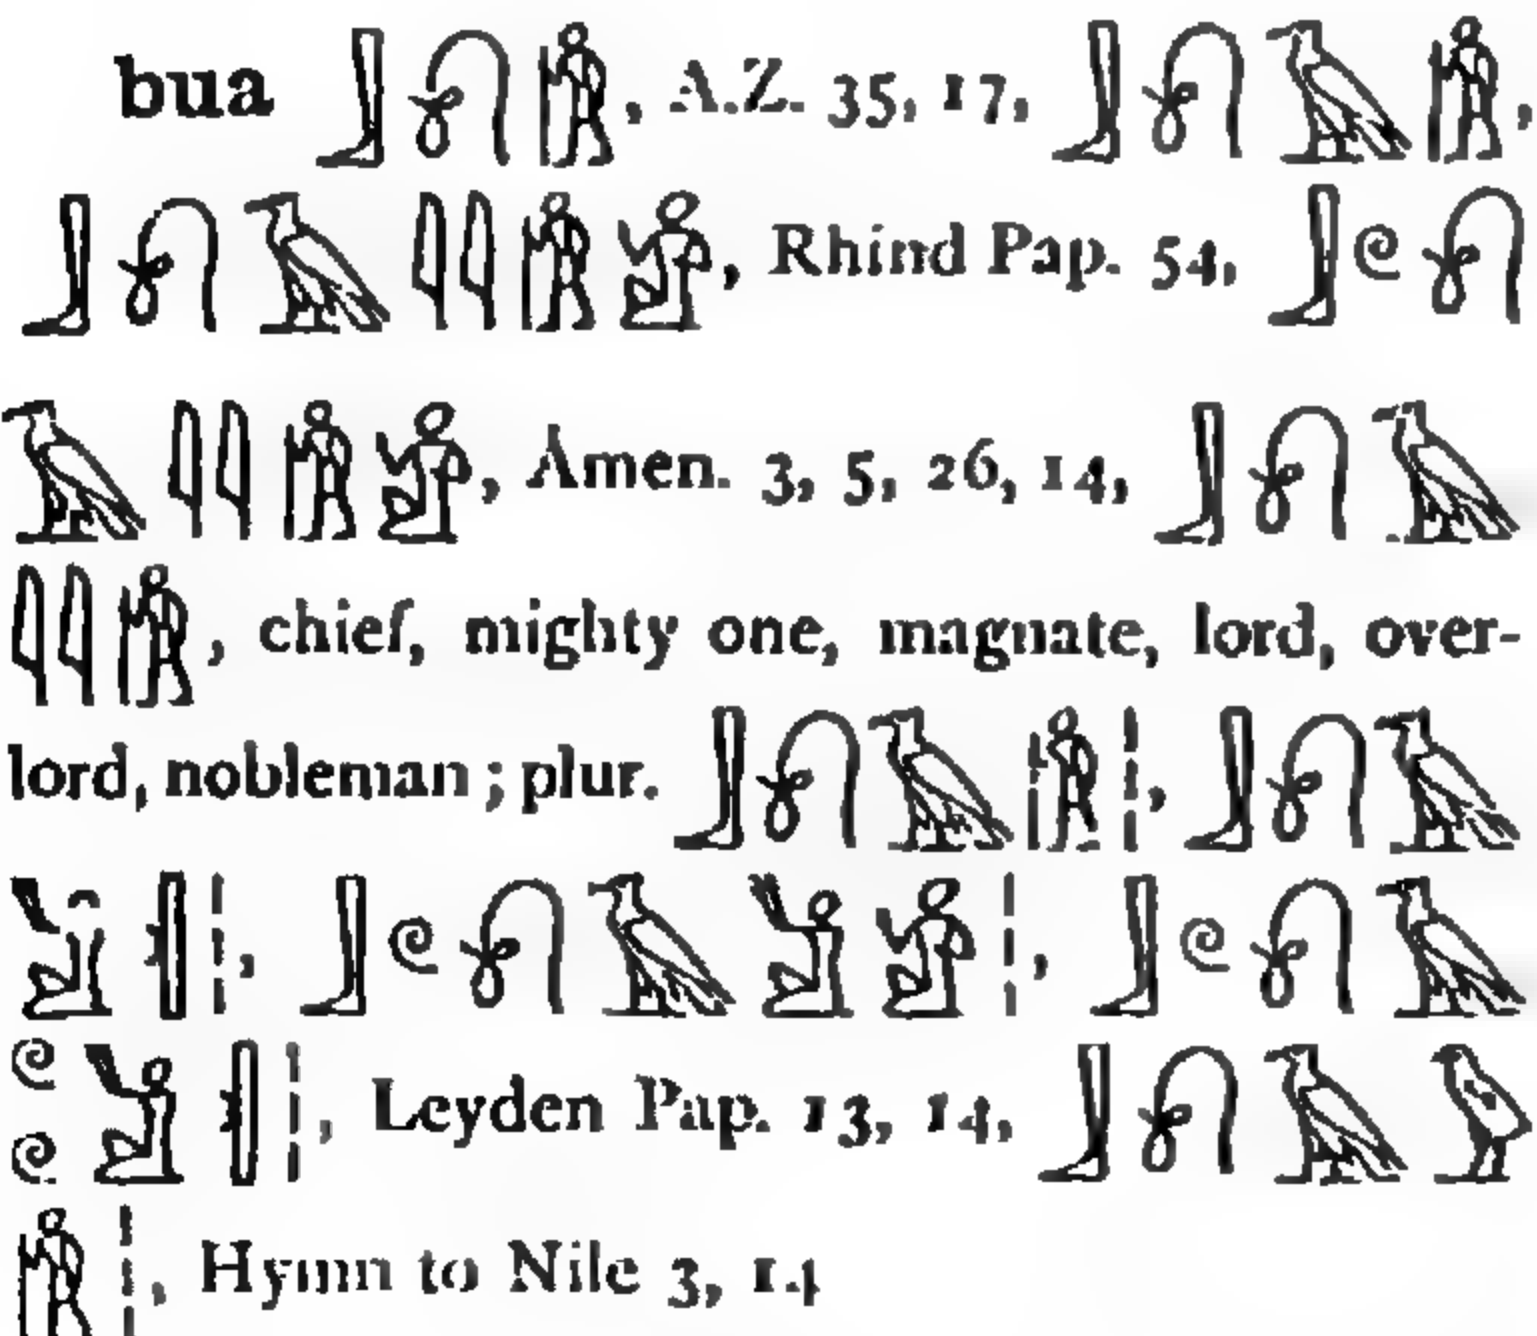 bua 𓃀𓍯𓀙, A.Z. 35, 17, 𓃀𓍯𓄿𓀙,
𓃀𓍯𓄿𓇋𓇋𓀙𓀀, Rhind Pap. 54, 𓃀𓏲𓍯
𓄿𓇋𓇋𓀙𓀀, Ȧmen. 3, 5, 26, 14, 𓃀𓍯𓄿
𓇋𓇋𓀙, chief, mighty one, magnate, lord, over-
lord, nobleman; plur. 𓃀𓍯𓄿𓀙𓏫, 𓃀𓍯𓄿
𓀃𓏜𓏫, 𓃀𓏲𓍯𓄿𓀃𓀀𓏫, 𓃀𓏲𓍯𓄿
𓏲𓏲𓀃𓏜𓏫, Leyden Pap. 13, 14, 𓃀𓍯𓄿𓅱
𓀙𓏫, Hymn to Nile 3, 14